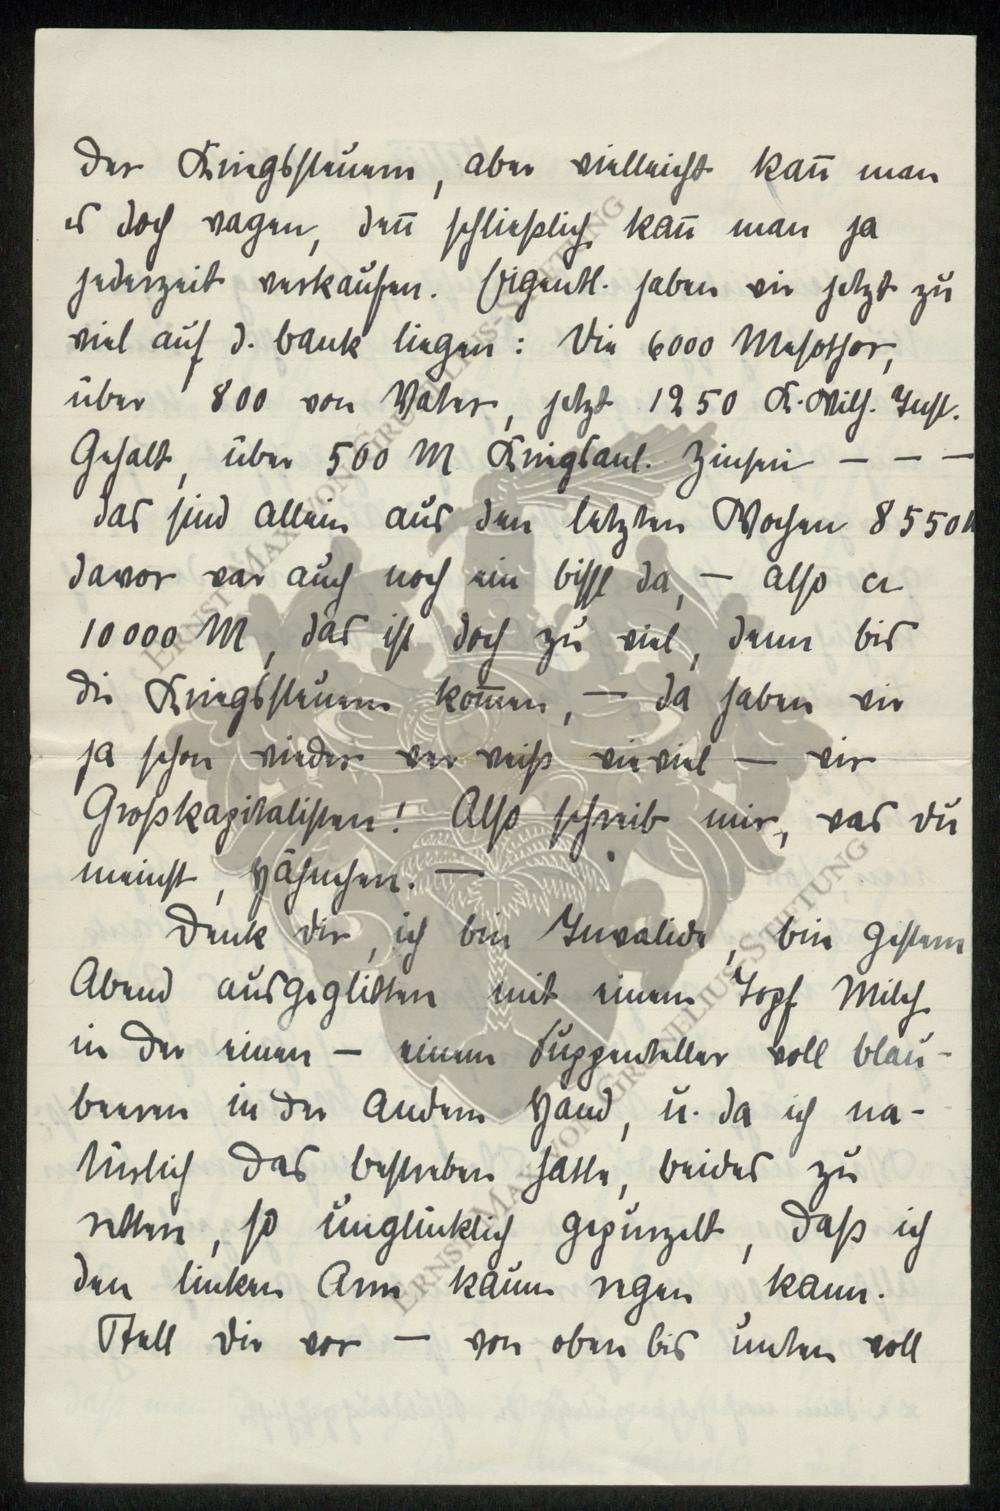 der Kriegssteuern, aber vielleicht kan̄ man
es doch wagen, den̄ schließlich kan̄ man ja
jederzeit verkaufen. Eigentl. haben wir jetzt zu
viel auf d. bank liegen: Die 6000 Mesothor,
über 800 von Vater, jetzt 1250 K. Wilh. Inst.
Gehalt, über 500 M Kriegsanl. Zinsen – – –
das sind allein aus den letzten Wochen 8550 M
davor war auch noch ein bissl da, – also ca
10000 M, das ist doch zu viel, denn bis
die Kriegssteuern kom̄en, – da haben wir
ja schon wieder wer weiß wieviel – wir
Großkapitalisten! Also schreib mir, was du
meinst, Hähnchen. –
Denk dir, ich bin Invalide, bin gestern
Abend ausgeglitten mit einem Topf Milch
in der einen – einem Suppenteller voll blau-
beeren in der andern Hand, u. da ich na-
türlich das bestreben hatte, beides zu
retten, so unglücklich gepurzelt, daß ich
den linken Arm kaum regen kann.
Stell dir vor – von oben bis unten voll
ERNST-MAX-VON-GRUNELIUS-STIFTUNG
ERNST-MAX-VON-GRUNELIUS-STIFTUNG